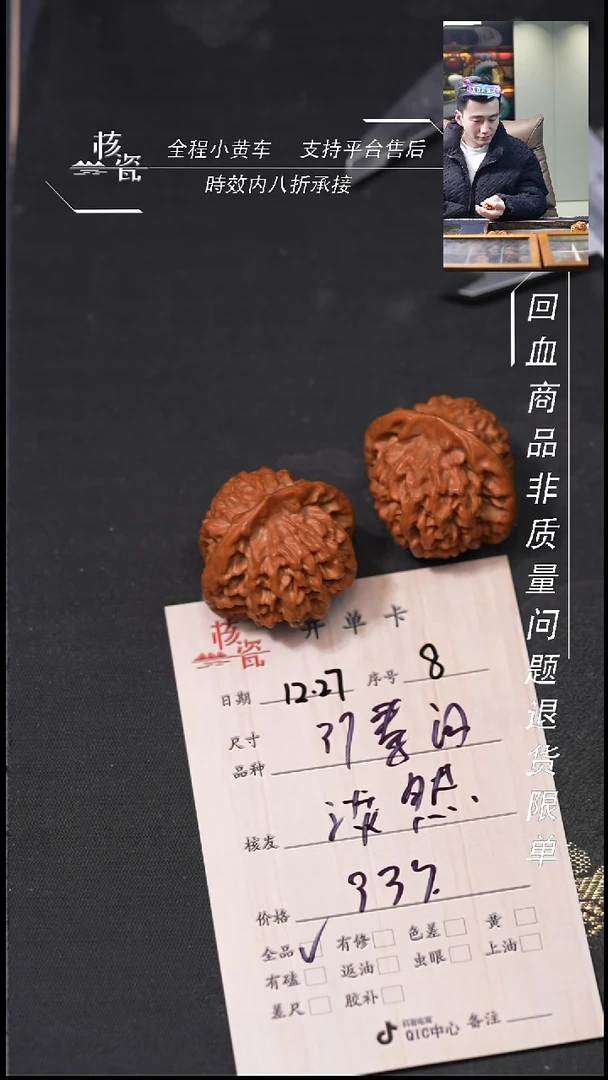 核瓷
全程小黄车 支持平台售后
時效内八折承接
回血商品非质量问题退货限单
核瓷
开单卡
日期 12.27 序号 8
尺寸
品种
37
核友
淡然
价格
全品 ✓ 有修 色差 黄
有磕 返油 虫眼 上油
差尺 胶补
QIC中心 备注